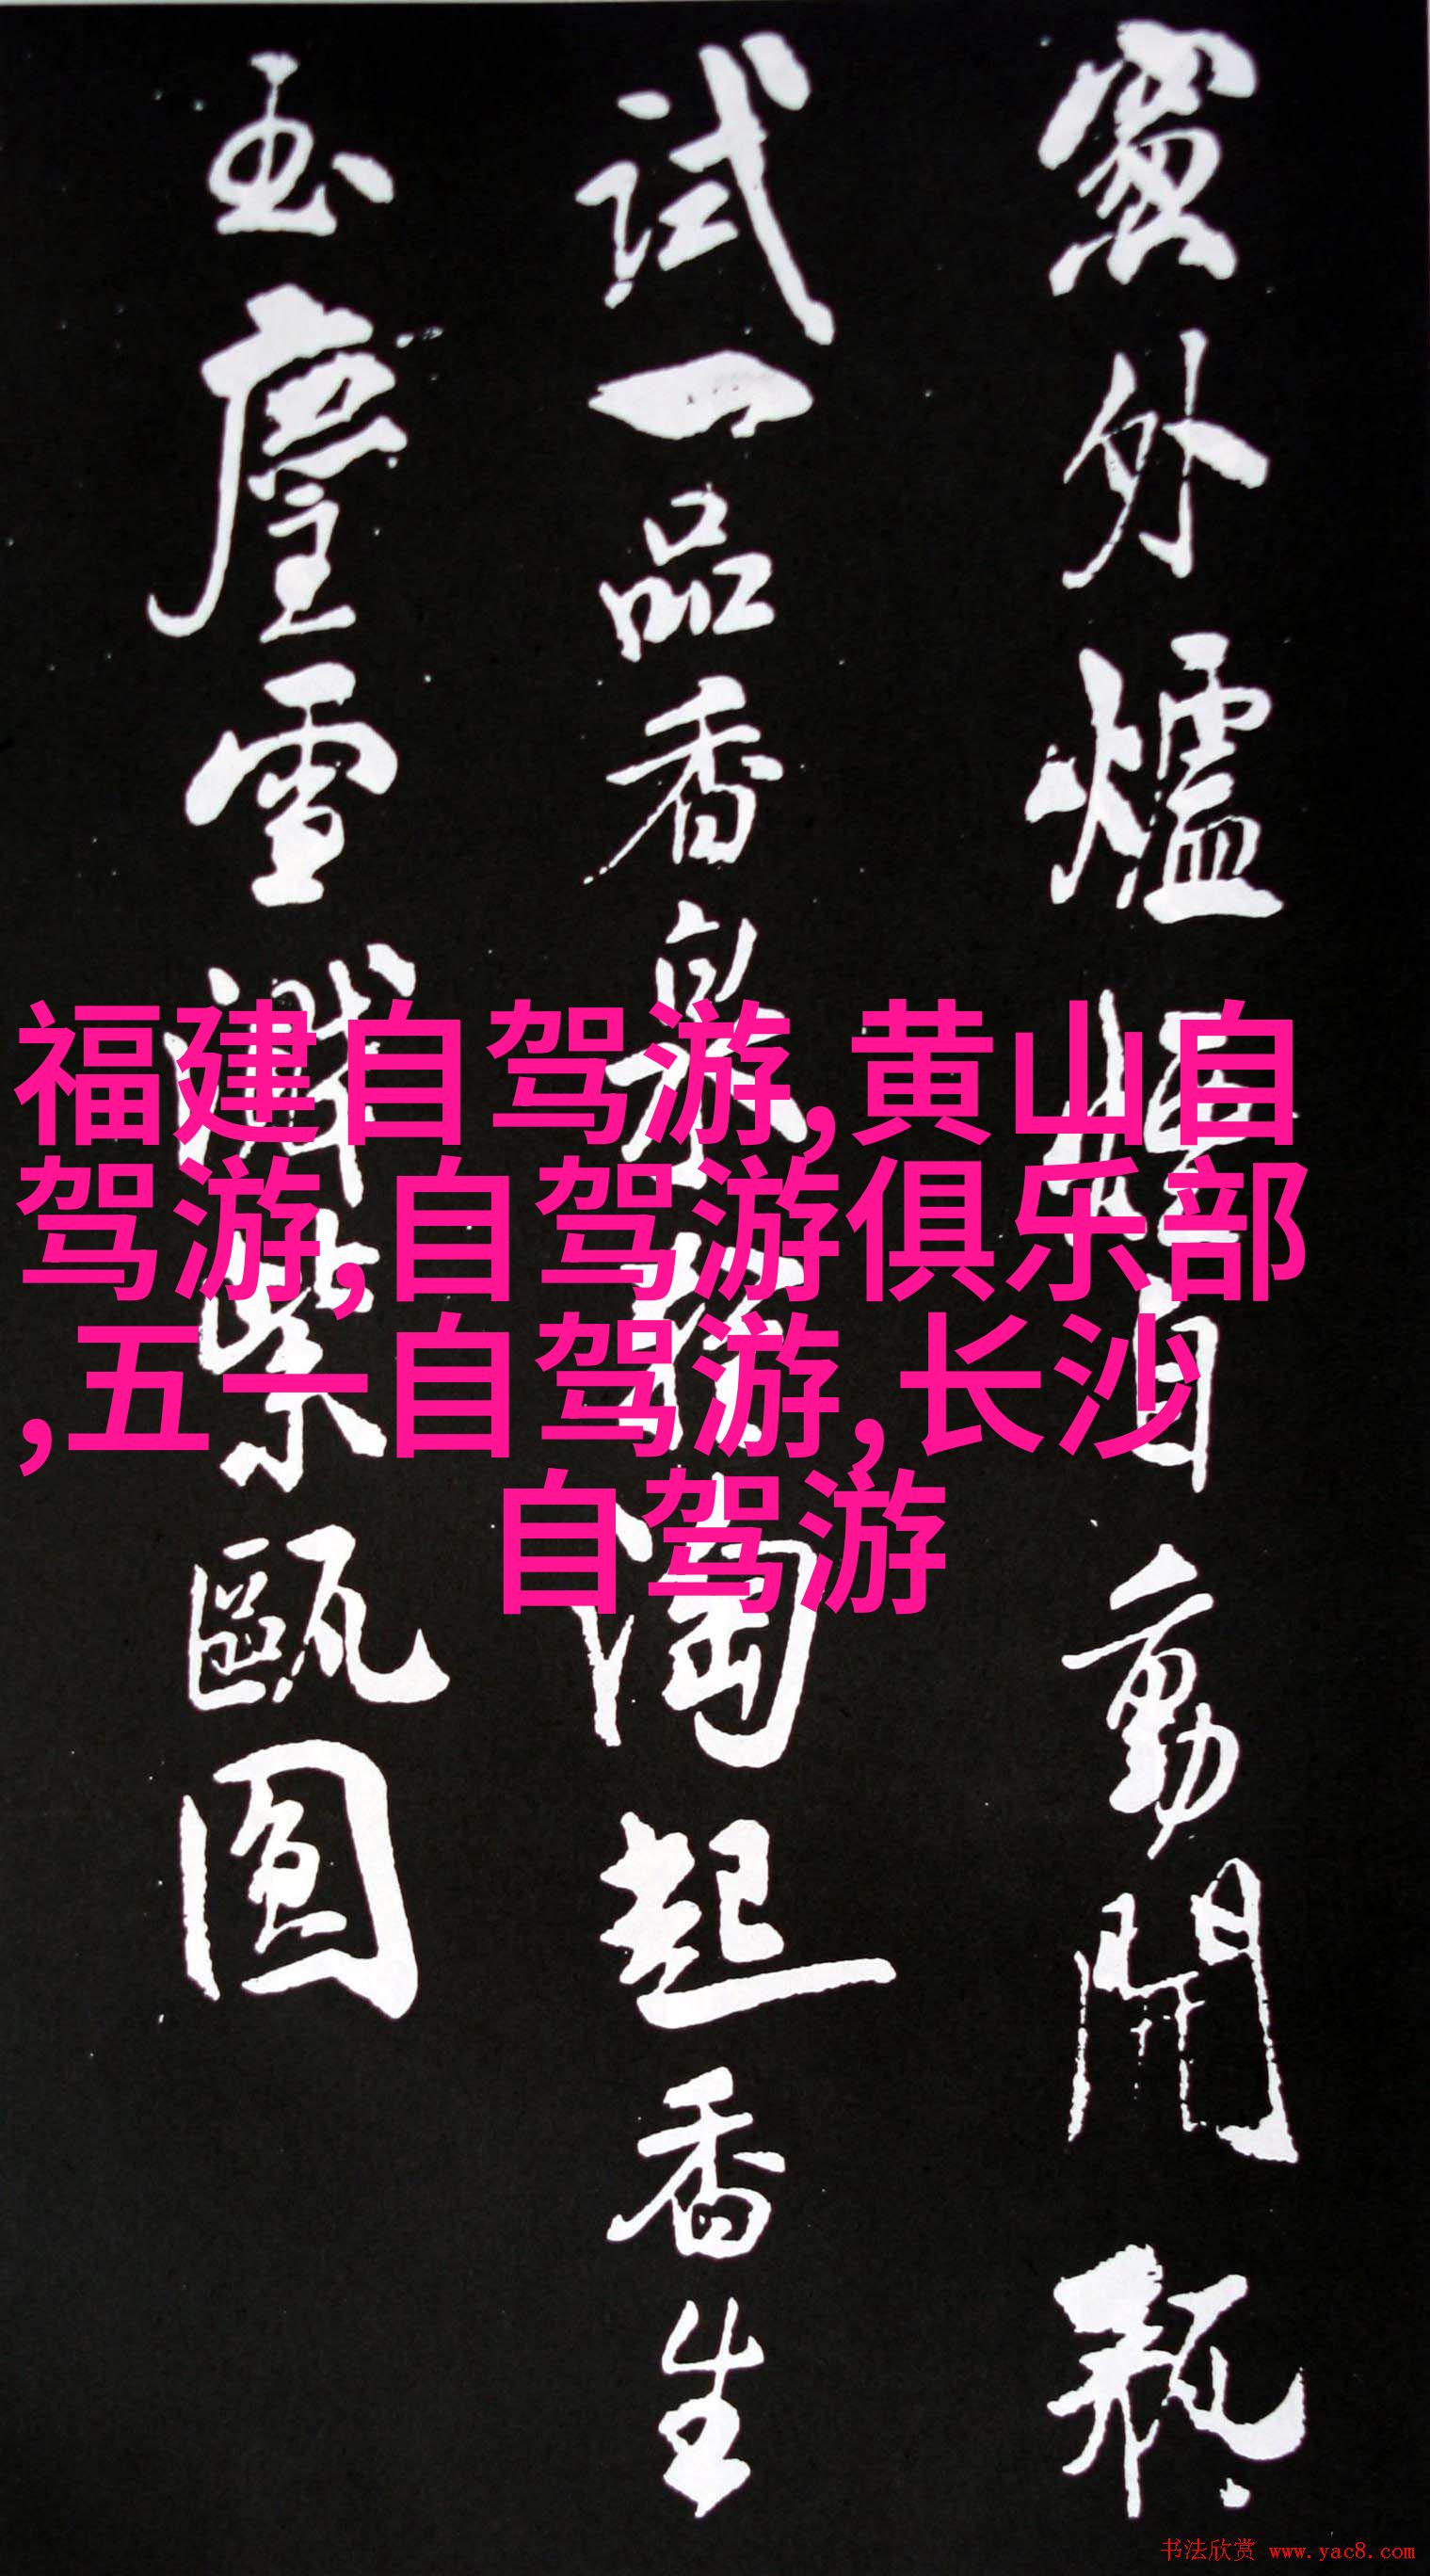 窗外爐烟自動開瓶
試一品香泉
淘起香生
玉塵雪濺紫甌圓
福建自驾游,黄山自
驾游,自驾游俱乐部
,五一自驾游,长沙
自驾游
书法欣赏 www.yac8.com